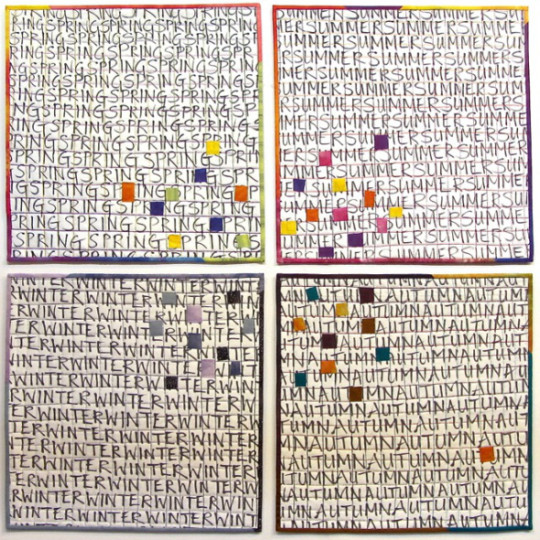 SPRINGSPRINGSPRINGSPRING
RINGSPRINGSPRINGSPRINGSPR
SPRINGSPRINGSPRINGSPRING
RINGSPRINGSPRINGSPRINGSP
SPRINGSPRINGSPRINGSPRING
RINGSPRINGSPRINGSPRING
INGSPRINGSPRINGSPRINGS
SPRINGSPRINGSPRINGSPRING
RINGSPRINGSPRINGSPRING
SPRINGSPRINGSPRING
SPRINGSPRINGSPRING
NGSPRINGSPRING
RINGSPRINGSPRING
SPRINGSPRINGSPRING
SUMMERSUMMERSUMMERSUMMER
UMMERSUMMERSUMMERSUMM
SUMMERSUMMERSUMMERSUM
MMERSUMMERSUMMERSUMMER
UMMERSUMMERSUMMERSUMME
MMERSUMMERSUMMERSUMMER
SUMMERSUMMERSUMMERSUMM
UMMERSUMMERSUMMERSUMMER
UMMERSUMMERSUMMER
SUMMERSUMMERSUMMER
MMERSUMMERSUMMER
SUMMERSUMMERSUMMER
SUMMERSUMMER
SUMMERSUMMER
WINTERWINTERWINTER
RWINTERWINTERWINTER
ERWINTERWINTER
TERWINTERWINTER
WINTERWINTERWINTER
INTERWINTERWINTERWIN
WINTERWINTERWINTER
ERWINTERWINTERWINTERWIN
RWINTERWINTERWINTERWINT
NTERWINTERWINTERWINTER
TERWINTERWINTERWINTERWIN
ERWINTERWINTERWINTERWIN
TERWINTERWINTERWINTERWI
RWINTERWINTERWINTERWIN
AUTUMNAUTUMNAUTUMN
AUTUMNAUTUMNAUTUMN
UMNAUTUMNAUTUMN
AUTUMNAUTUMN
AUTUMNAUTUMNAUTUMN
AUTUMNAUTUMNAUTUMN
UTUMNAUTUMNAUTUMNAUT
TUMNAUTUMNAUTUMNAUTU
UMNAUTUMNAUTUMNAUTUMN
MNAUTUMNAUTUMNAUTUMN
AUTUMNAUTUMNAUTUMN
TUMNAUTUMNAUTUMNAUTUM
UMNAUTUMNAUTUMNAUTUMN